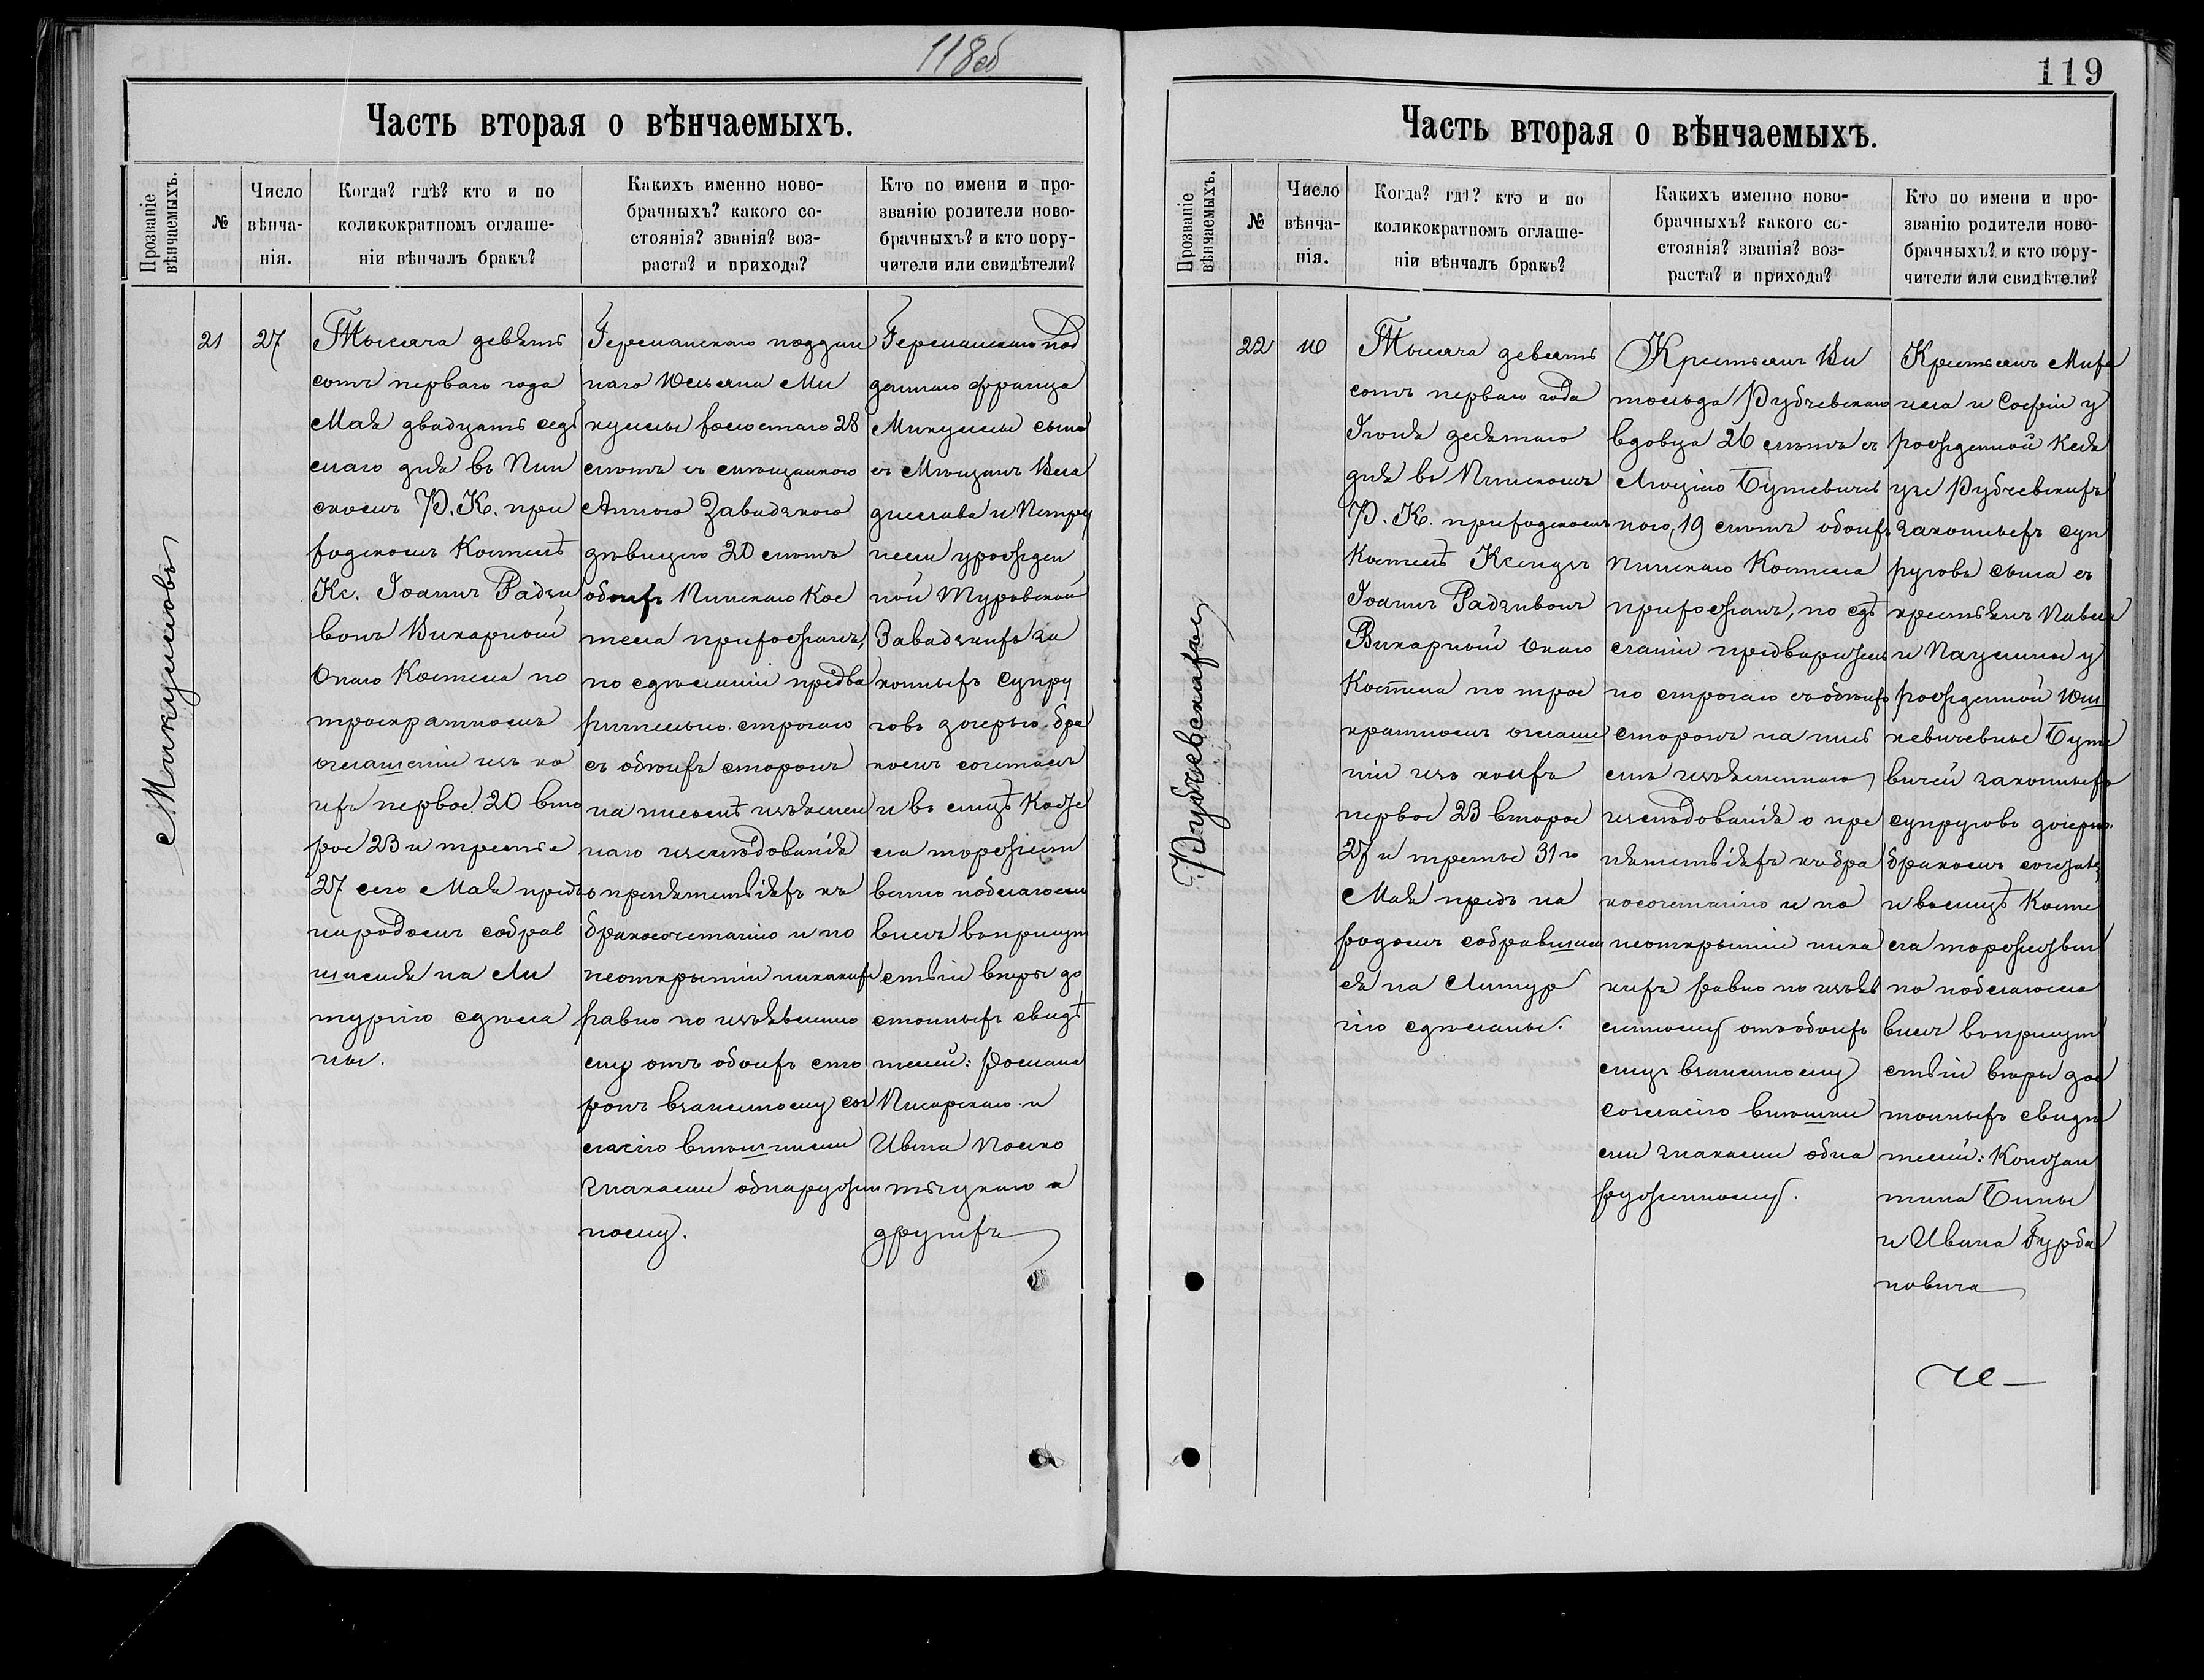 118об
Часть вторая о вѣнчаемыхъ.
Прозваніе вѣнчаемыхъ.
№
Число вѣнча-
нія.
Когда? гдѣ? кто и по
коликократномъ оглаше-
ніи вѣнчалъ бракъ?
Какихъ именно ново-
брачныхъ? какого со-
стоянія? званія? воз-
раста? и прихода?
Кто по имени и про-
званію родители ново-
брачныхъ? и кто пору-
чители или свидѣтели?
Микулловъ
21
27
Тысяча девять
сотъ перваго года
Мая двадцать седь
маго дня въ Пин
скомъ Р. К. при
ходскомъ Костелѣ
Кс. Іоаннъ Радзи
вонъ Викарный
Онаго Костела по
троекратномъ
оглашеніи изъ ко
ихъ первое 20 вто
рое 23 и третье
27 сего Мая предъ
народомъ собрав
шимся на Ли
тургію сдѣла
ны.
Германскаго поддан
наго Юльяна Ми
куллы холостаго 28
лѣтъ съ мѣщанкою
Анною Завадзкою
дѣвицею 20 лѣтъ
обоихъ Пинскаго Кос
тела прихожанъ,
по сдѣланіи предва
рительно строгаго
съ обѣихъ сторонъ
на письмѣ изъясен
наго изслѣдованія
о препятствіяхъ къ
бракосочетанію и по
неоткрытіи никакихъ
равно по изъявленно
му отъ обоихъ сто
ронъ взаимному сог
ласію внѣшними
знаками обнаружен
ному.
Германскаго под
даннаго Франца
Микуллы сына
съ Мѣщанъ Вла
дислава и Петру
нели урожден
ной Туровской
Завадзкихъ за
конныхъ Супру
говъ дочерью бра
комъ сочеталъ
и въ лицѣ Косте
ла торжествен
венно поблагосло
вилъ въ присут
ствіи вѣры до
стойныхъ свидѣ
телей: Романа
Писарскаго и
Ивана
и
другихъ
119
Часть вторая о вѣнчаемыхъ.
Прозваніе вѣнчаемыхъ.
№
Число вѣнча-
нія.
Когда? гдѣ? кто и по
коликократномъ оглаше-
ніи вѣнчалъ бракъ?
Какихъ именно ново-
брачныхъ? какого со-
стоянія? званія? воз-
раста? и прихода?
Кто по имени и про-
званію родители ново-
брачныхъ? и кто пору-
чители или свидѣтели?
Рубчевскихъ
22
10
Тысяча девять
сотъ перваго года
Іюня десятаго
дня въ Пинскомъ
Р. К. приходскомъ
Костелѣ Ксендзъ
Іоаннъ Радзивонъ
Викарный Онаго
Костела по трое
кратномъ оглаше
ніи изъ коихъ
первое 23 второе
27 и третье 31 го
Мая предъ на
родомъ собравшим
ся на Литур
гію сдѣланы.
Крестьянъ Ви
тольда Рубчевскаго
вдовца 26 лѣтъ съ
Люціею Бутевичев
ною, 19 лѣтъ обоихъ
Пинскаго Костела
прихожанъ, по сдѣ
ланіи предварител
но строгаго съ обѣихъ
сторонъ на пись
мѣ изъясненнаго
изслѣдованія о пре
пятствіяхъ къ бра
косочетанію и по
неоткрытіи ника
кихъ равно по изъяв
ленному отъ обоихъ
ихъ взаимному
согласію внѣшни
ми знаками обна
руженному.
Крестьянъ Миха
ила и Софіи у
рожденной
Рубчевскихъ
законныхъ суп
руговъ сына съ
крестьянъ Павла
и Паулины у
рожденной Юш
кевичевны Буте
вичей законныхъ
супруговъ дочерью
бракомъ сочеталъ
и въ лицѣ Косте
ла торжествен
но поблагосло
вилъ въ присут
ствіи вѣры дос
тойныхъ свидѣ
телей: Констан
тина Бины
и Ивана Гурба
новича